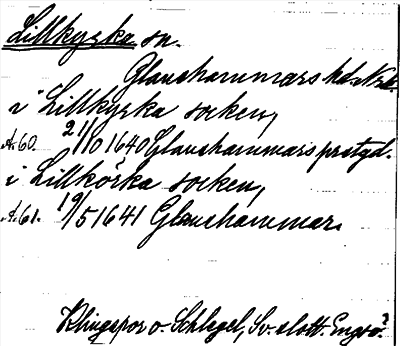 Lillkyrka sn.
Glanshammars hd. Nrk.
i Lillkyrka socken,
A:60. 21/10 1640 Glanshammars prstgd.
i Lillkörka socken,
A:61. 19/5 1641 Glanshammar.
Klingspor o. Schlegel, Sv. slott. Engsö?